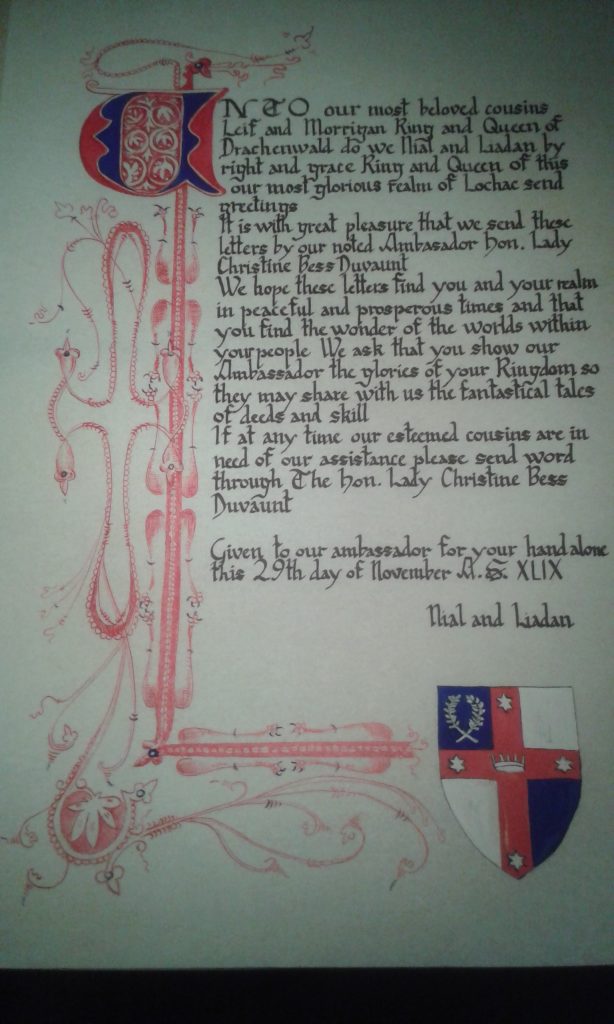 UNTO our most beloved cousins
Leif and Morrigan King and Queen of
Drachenwald do we Nial and Liadan by
right and grace King and Queen of this
our most glorious realm of Lochac send
greetings
It is with great pleasure that we send these
letters by our noted Ambasador Hon. Lady
Christine Bess Duvaunt
We hope these letters find you and your realm
in peaceful and prosperous times and that
you find the wonder of the worlds within
your people We ask that you show our
Ambassador the glories of your Kingdom so
they may share with us the fantastical tales
of deeds and skill
If at any time our esteemed cousins are in
need of our assistance please send word
through The Hon. Lady Christine Bess
Duvaunt
Given to our ambassador for your hand alone
this 29th day of November A.S. XLIX
Nial and Liadan